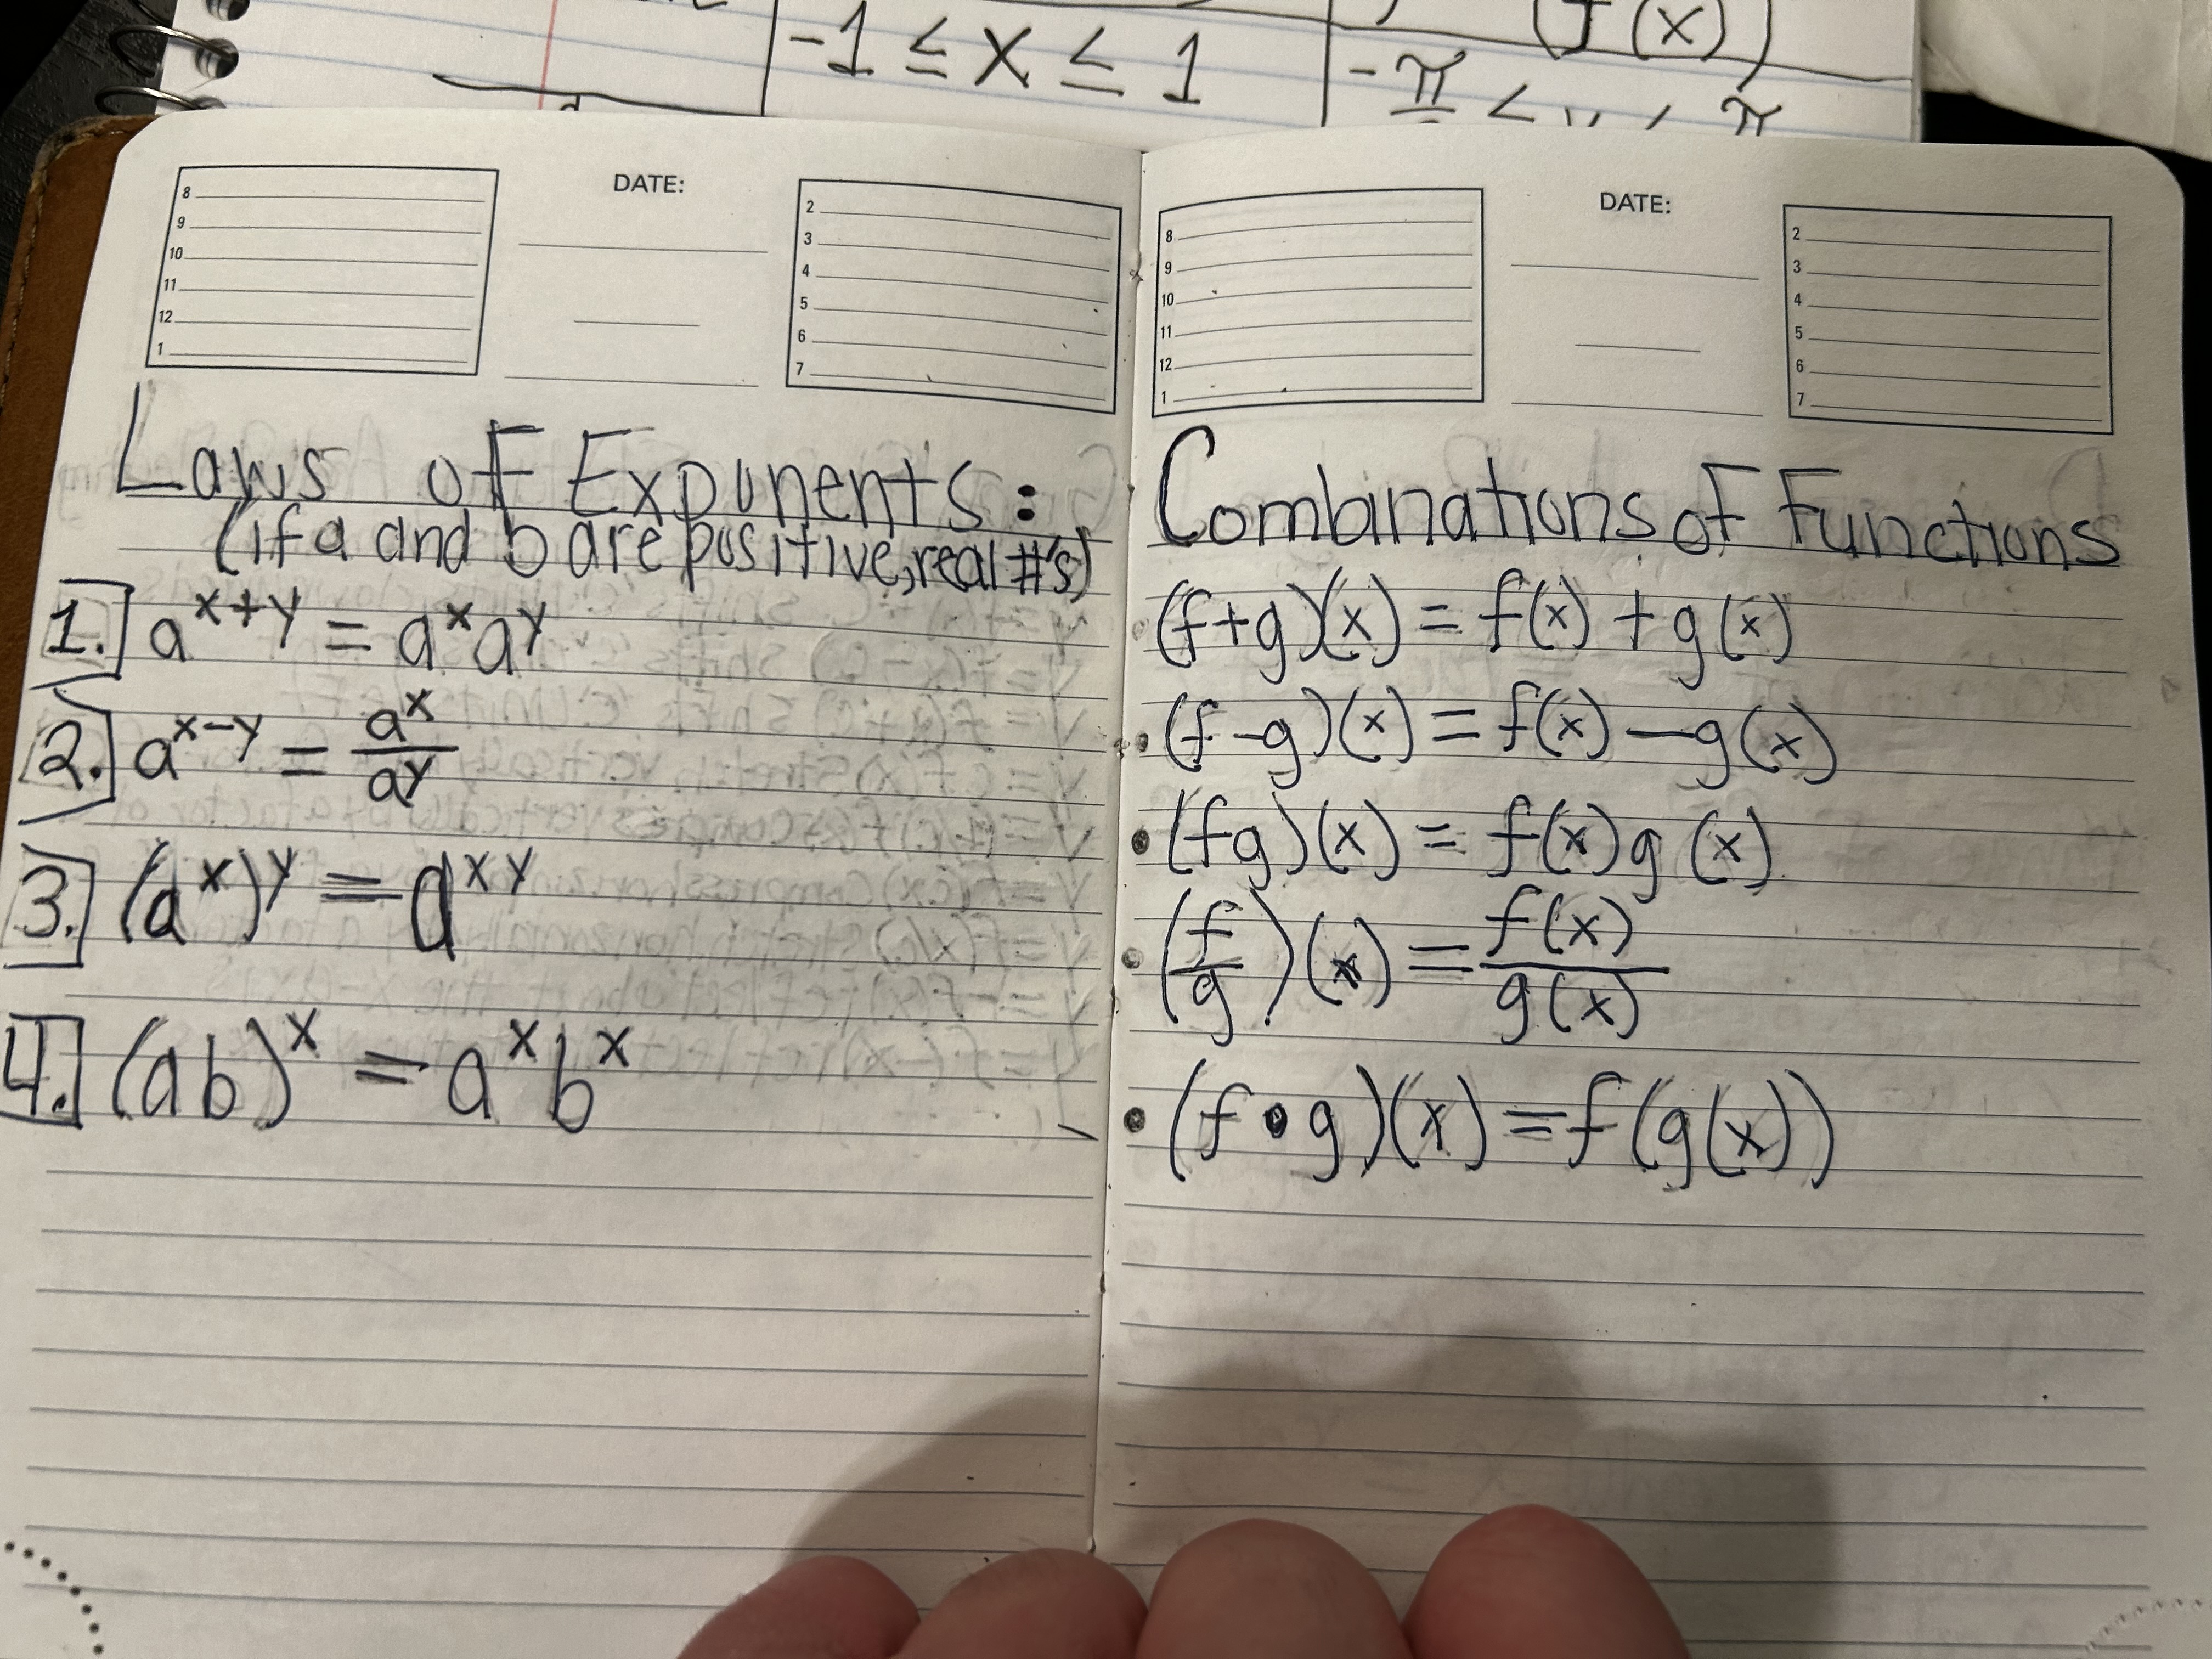 DATE:
8
9
10
11
12
1
2
3
4
5
6
7
Laws of Exponents:
(if a and b are positive, real #'s)
1. a^(x+y) = a^x a^y
2. a^(x-y) = a^x / a^y
3. (a^x)^y = a^(xy)
4. (ab)^x = a^x b^x
DATE:
8
9
10
11
12
1
2
3
4
5
6
7
Combinations of Functions
• (f+g)(x) = f(x) + g(x)
• (f-g)(x) = f(x) - g(x)
• (fg)(x) = f(x)g(x)
• (f/g)(x) = f(x)/g(x)
• (f•g)(x) = f(g(x))
-1 ≤ x ≤ 1